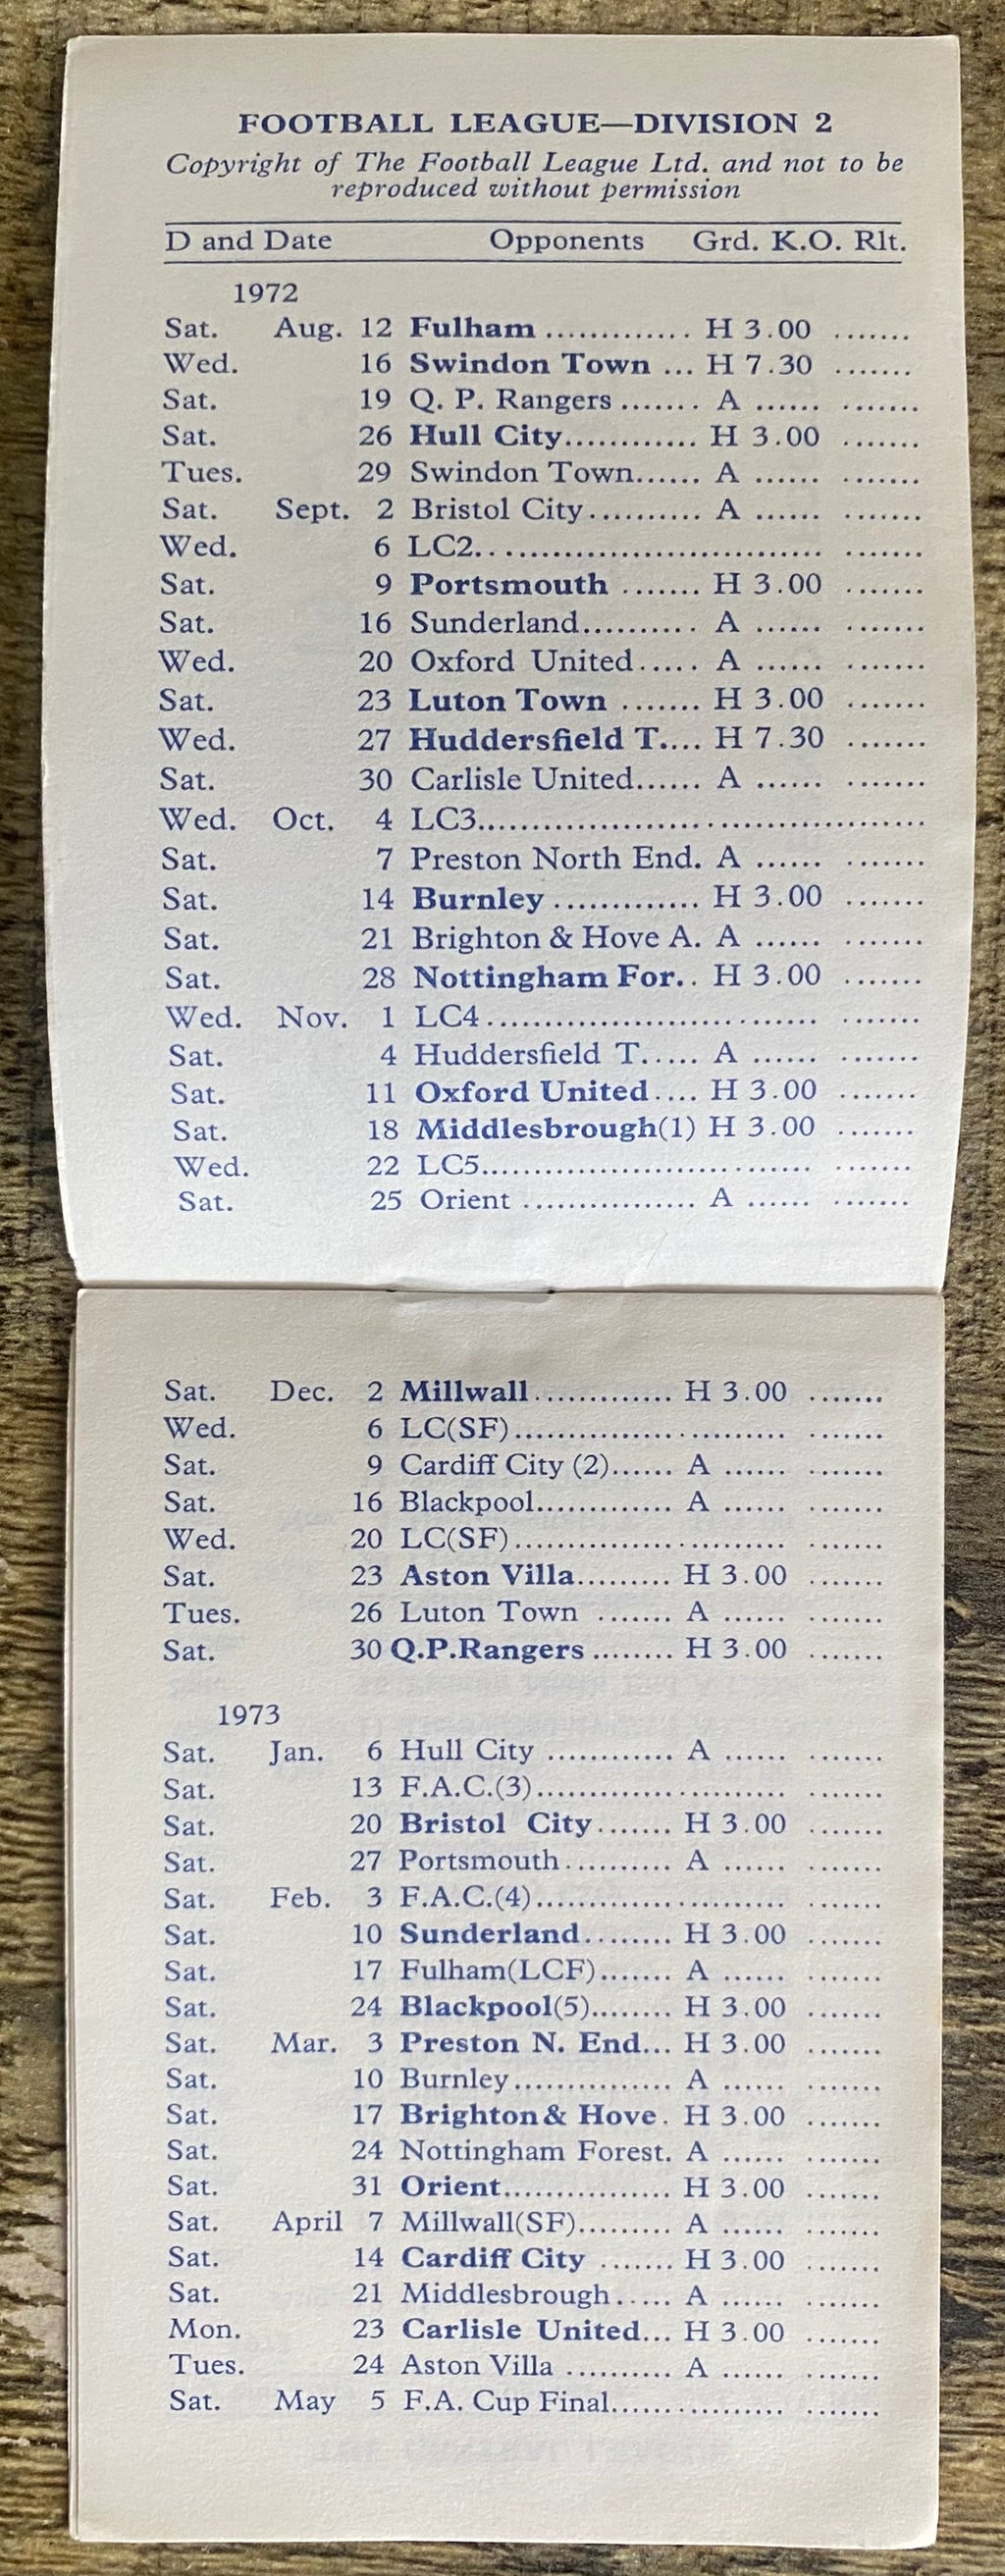 FOOTBALL LEAGUE—DIVISION 2
Copyright of The Football League Ltd. and not to be
reproduced without permission
D and Date Opponents Grd. K.O. Rlt.
1972
Sat. Aug. 12 Fulham ............. H 3.00 .......
Wed. 16 Swindon Town ... H 7.30 .......
Sat. 19 Q. P. Rangers ....... A ...... .......
Sat. 26 Hull City............ H 3.00 .......
Tues. 29 Swindon Town...... A ...... .......
Sat. Sept. 2 Bristol City.......... A ...... .......
Wed. 6 LC2................................ .......
Sat. 9 Portsmouth ....... H 3.00 .......
Sat. 16 Sunderland.......... A ...... .......
Wed. 20 Oxford United..... A ...... .......
Sat. 23 Luton Town ....... H 3.00 .......
Wed. 27 Huddersfield T.... H 7.30 .......
Sat. 30 Carlisle United...... A ...... .......
Wed. Oct. 4 LC3..........................................
Sat. 7 Preston North End. A ...... .......
Sat. 14 Burnley ............. H 3.00 .......
Sat. 21 Brighton & Hove A. A ...... .......
Sat. 28 Nottingham For.. H 3.00 .......
Wed. Nov. 1 LC4............................... .......
Sat. 4 Huddersfield T..... A ...... .......
Sat. 11 Oxford United.... H 3.00 .......
Sat. 18 Middlesbrough(1) H 3.00 .......
Wed. 22 LC5............................... .......
Sat. 25 Orient ................ A ...... .......
Sat. Dec. 2 Millwall............. H 3.00 .......
Wed. 6 LC(SF)......................... .......
Sat. 9 Cardiff City (2)...... A ...... .......
Sat. 16 Blackpool............ A ...... .......
Wed. 20 LC(SF)......................... .......
Sat. 23 Aston Villa......... H 3.00 .......
Tues. 26 Luton Town ....... A ...... .......
Sat. 30 Q.P.Rangers ........ H 3.00 .......
1973
Sat. Jan. 6 Hull City ........... A ...... .......
Sat. 13 F.A.C.(3)....................... .......
Sat. 20 Bristol City....... H 3.00 .......
Sat. 27 Portsmouth.......... A ...... .......
Sat. Feb. 3 F.A.C.(4)....................... .......
Sat. 10 Sunderland........ H 3.00 .......
Sat. 17 Fulham(LCF)....... A ...... .......
Sat. 24 Blackpool(5)........ H 3.00 .......
Sat. Mar. 3 Preston N. End... H 3.00 .......
Sat. 10 Burnley............... A ...... .......
Sat. 17 Brighton& Hove. H 3.00 .......
Sat. 24 Nottingham Forest. A ...... .......
Sat. 31 Orient................ H 3.00 .......
Sat. April 7 Millwall(SF)......... A ...... .......
Sat. 14 Cardiff City ....... H 3.00 .......
Sat. 21 Middlesbrough..... A ...... .......
Mon. 23 Carlisle United... H 3.00 .......
Tues. 24 Aston Villa .......... A ...... .......
Sat. May 5 F.A. Cup Final................ .......